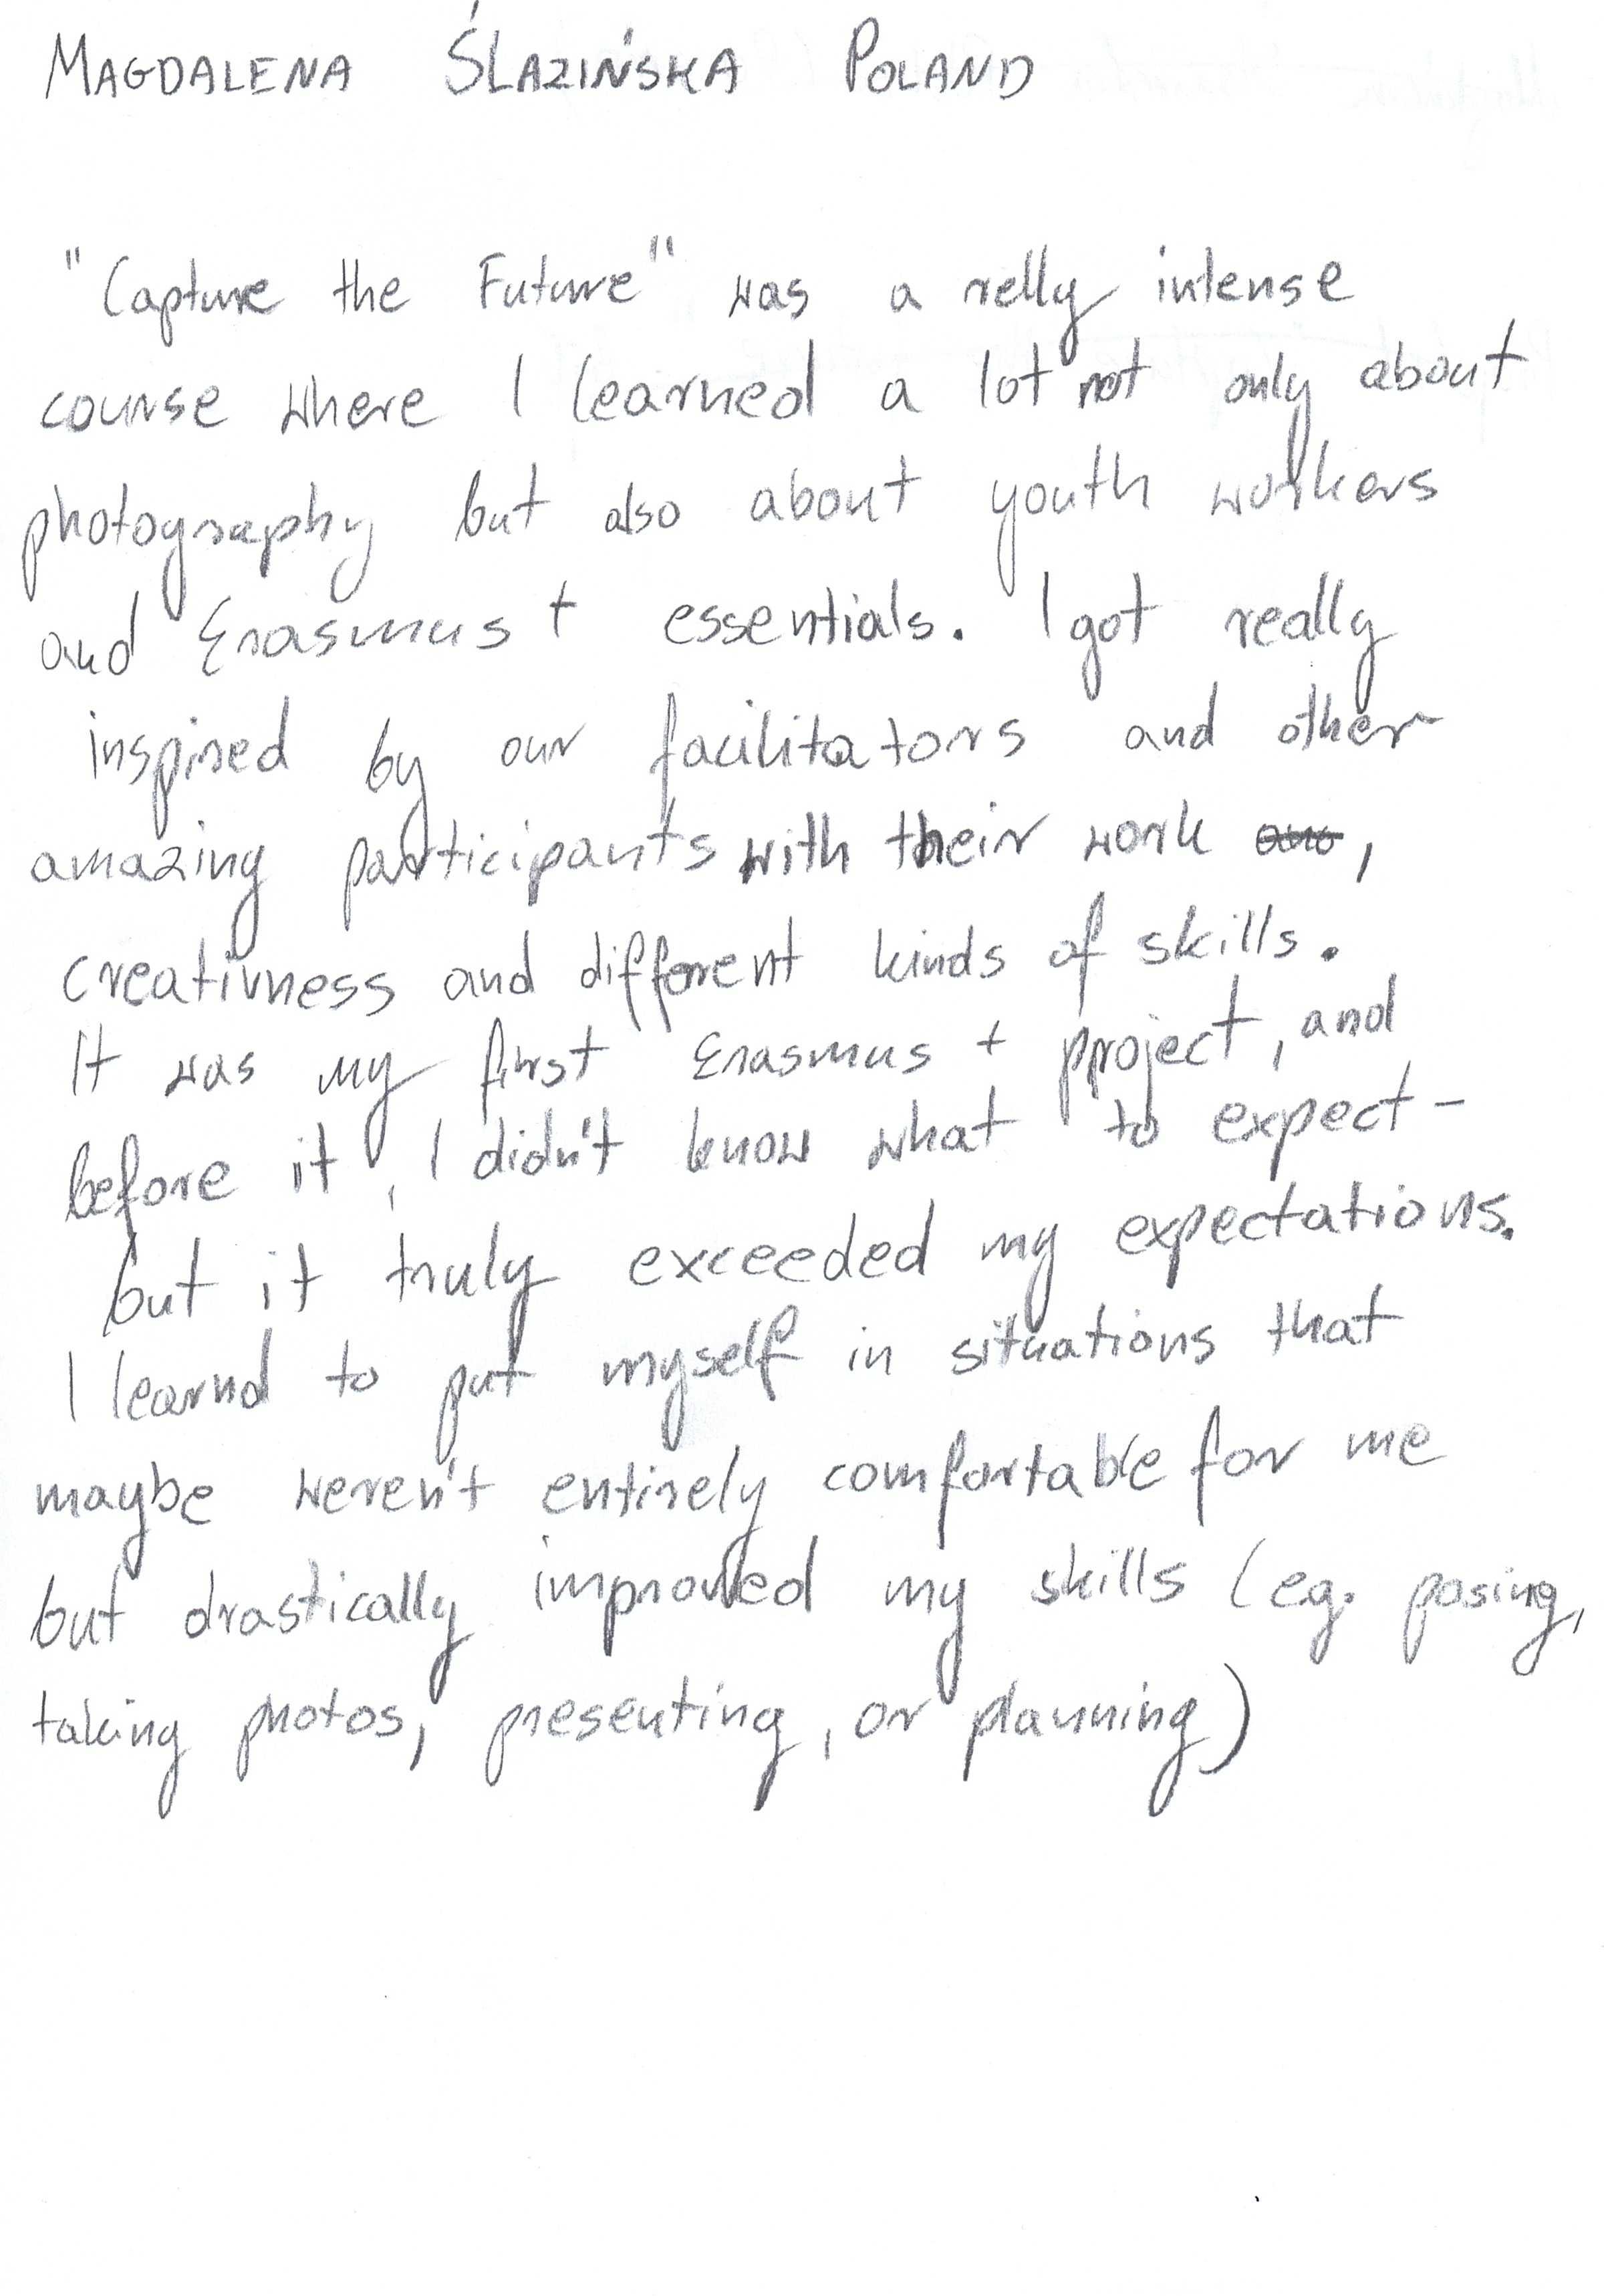 MAGDALENA ŚLAZIŃSKA POLAND
"Capture the Future" was a relly intense
course where I learned a lot not only about
photography but also about youth workers
and Erasmus + essentials. I got really
inspired by our facilitators and other
amazing participants with their work ,
creativness and different kinds of skills.
It was my first Erasmus + project, and
before it, I didn't know what to expect -
but it truly exceeded my expectations.
I learnd to put myself in situations that
maybe weren't entirely comfortable for me
but drastically improved my skills (eg. posing,
taking photos, presenting, or planning)